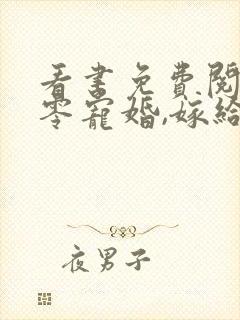 看書免費閱
零寵婚,嫁給
夜男子